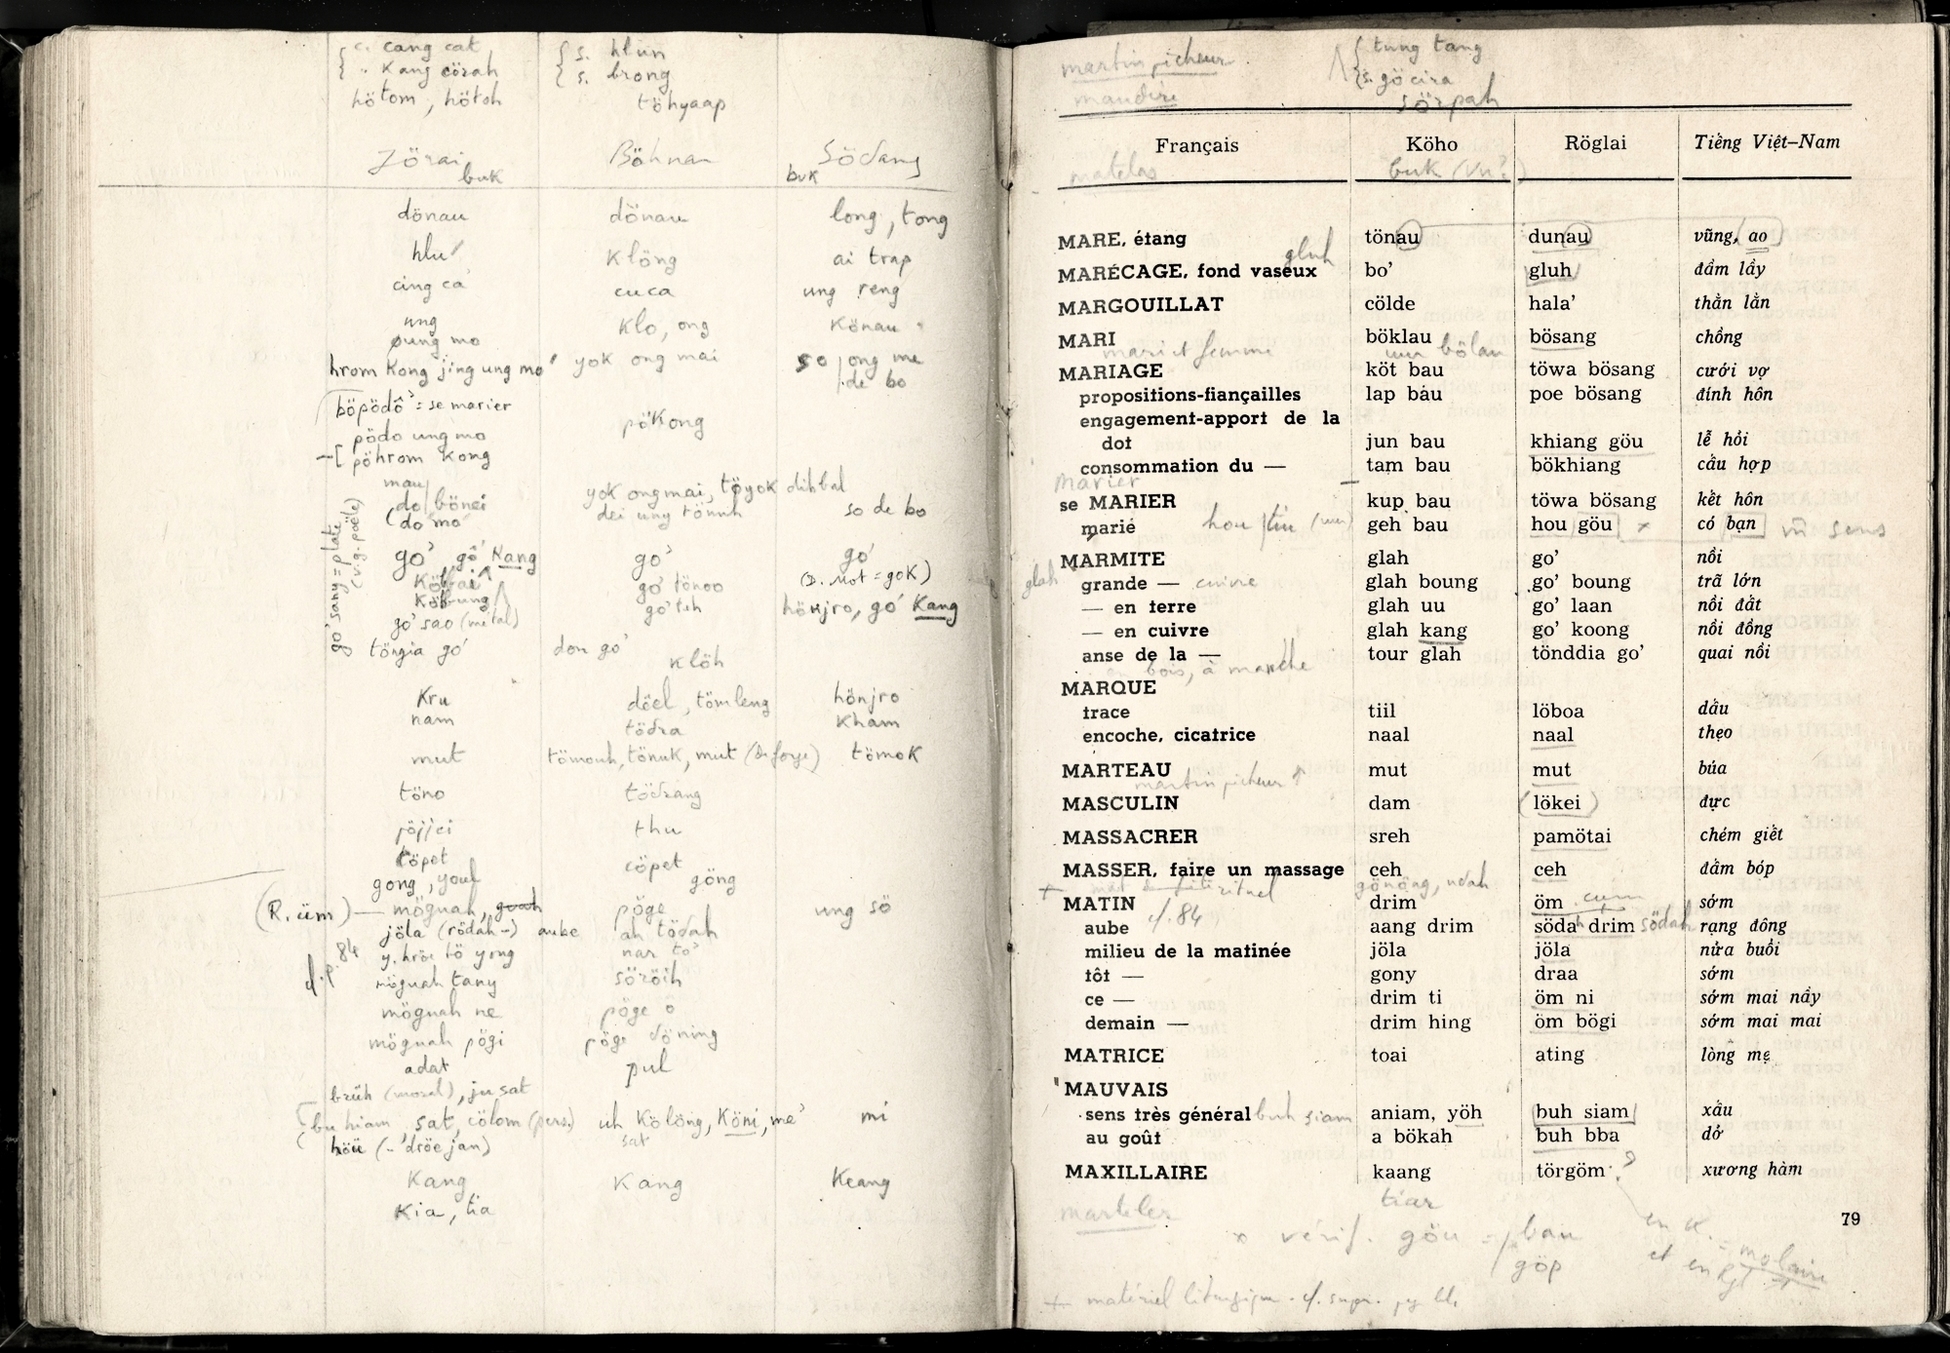 c. cang cat
" Kang cörah
hötom, hötoh
s. hlun
s. brong
töhyaap
Jörai
buk
Böhnan
Södang
buk
dönau
dönau
long, tong
hlu
Klöng
ai trap
cing ca
cuca
ung reng
ung
Klo, ong
Könau
pung mo
hrom Kong jing ung mo
yok ong mai
so ong me
de bo
böpödô = se marier
pödo ung mo
pöKong
pöhrom Kong
mau
do bönei
yok ong mai, töyok dihbal
do mo
so de bo
go' sang = plate
(v.g. poële)
go' gô' Kang
go'
go'
go' tönoo
(D. Not = goK)
Köbung
go' toh
hönjro, go' Kang
go' sao (métal)
töngia go'
don go'
Klöh
Kru
döel, tömleng
hönjro
nam
tödra
Kham
mut
tömouh, tönuk, mut (de forge)
tömoK
töno
tödrang
jöjjei
thu
töpet
cöpet
gong, youl
göng
(R. üm) — mögnah, guah
pöge
ung sö
jöla (rödah -) aube
ah tödah
84
y. hröe tö yong
nar to'
mögnah tany
söröih
mögnah ne
pöge ö
mögnah pögi
pöge döning
adat
pul
brüh (moral), ju sat
bu hiam, sat, cölom (pers.)
uh Kölöng, Köni, me'
mi
sat
höü (- 'dröe jan)
Kang
Kang
Keang
Kia, tia
martin pêcheur
tung tang
s. göcira
maudire
sörpah
Français
Köho
Röglai
Tiếng Việt-Nam
matelas
buk (Vn?)
MARE, étang
tönau
dunau
vũng, ao
gluh
MARÉCAGE, fond vaseux
bo'
gluh
đầm lầy
MARGOUILLAT
cölde
hala'
thằn lằn
MARI
böklau
bösang
chồng
mari et femme
bölau
MARIAGE
köt bau
töwa bösang
cưới vợ
propositions-fiançailles
lap bảu
poe bösang
đính hôn
engagement-apport de la
dot
jun bau
khiang göu
lễ hỏi
consommation du —
tam bau
bökhiang
cẩu hợp
marier
se MARIER
kup bau
töwa bösang
kết hôn
marié
geh bau
hou göu
có bạn
sens
MARMITE
glah
go'
nồi
glah
grande —
cuivre
glah boung
go' boung
trã lớn
— en terre
glah uu
go' laan
nồi đất
— en cuivre
glah kang
go' koong
nồi đồng
anse de la —
tour glah
tönddia go'
quai nồi
en bois, à manche
MARQUE
trace
tiil
löboa
dấu
encoche, cicatrice
naal
naal
thẹo
MARTEAU
mut
mut
búa
martin pêcheur ↑
MASCULIN
dam
(lökei)
đực
MASSACRER
sreh
pamötai
chém giết
MASSER, faire un massage
ceh
ceh
đấm bóp
gönöng, ndah
MATIN
drim
öm
sớm
aube
cf. 84
aang drim
södah drim
södah
rạng đông
milieu de la matinée
jöla
jöla
nửa buổi
tôt —
gony
draa
sớm
ce —
drim ti
öm ni
sớm mai nầy
demain —
drim hing
öm bögi
sớm mai mai
MATRICE
toai
ating
lòng mẹ
MAUVAIS
sens très général
buh siam
aniam, yöh
buh siam
xấu
au goût
a bökah
buh bba
dở
MAXILLAIRE
kaang
törgöm
?
xương hàm
marteler
tiar
79
x vérif. göu =
bau
göp
en K.
et en Rgl = molaire
+ matériel liturgique. cf. supr. pg